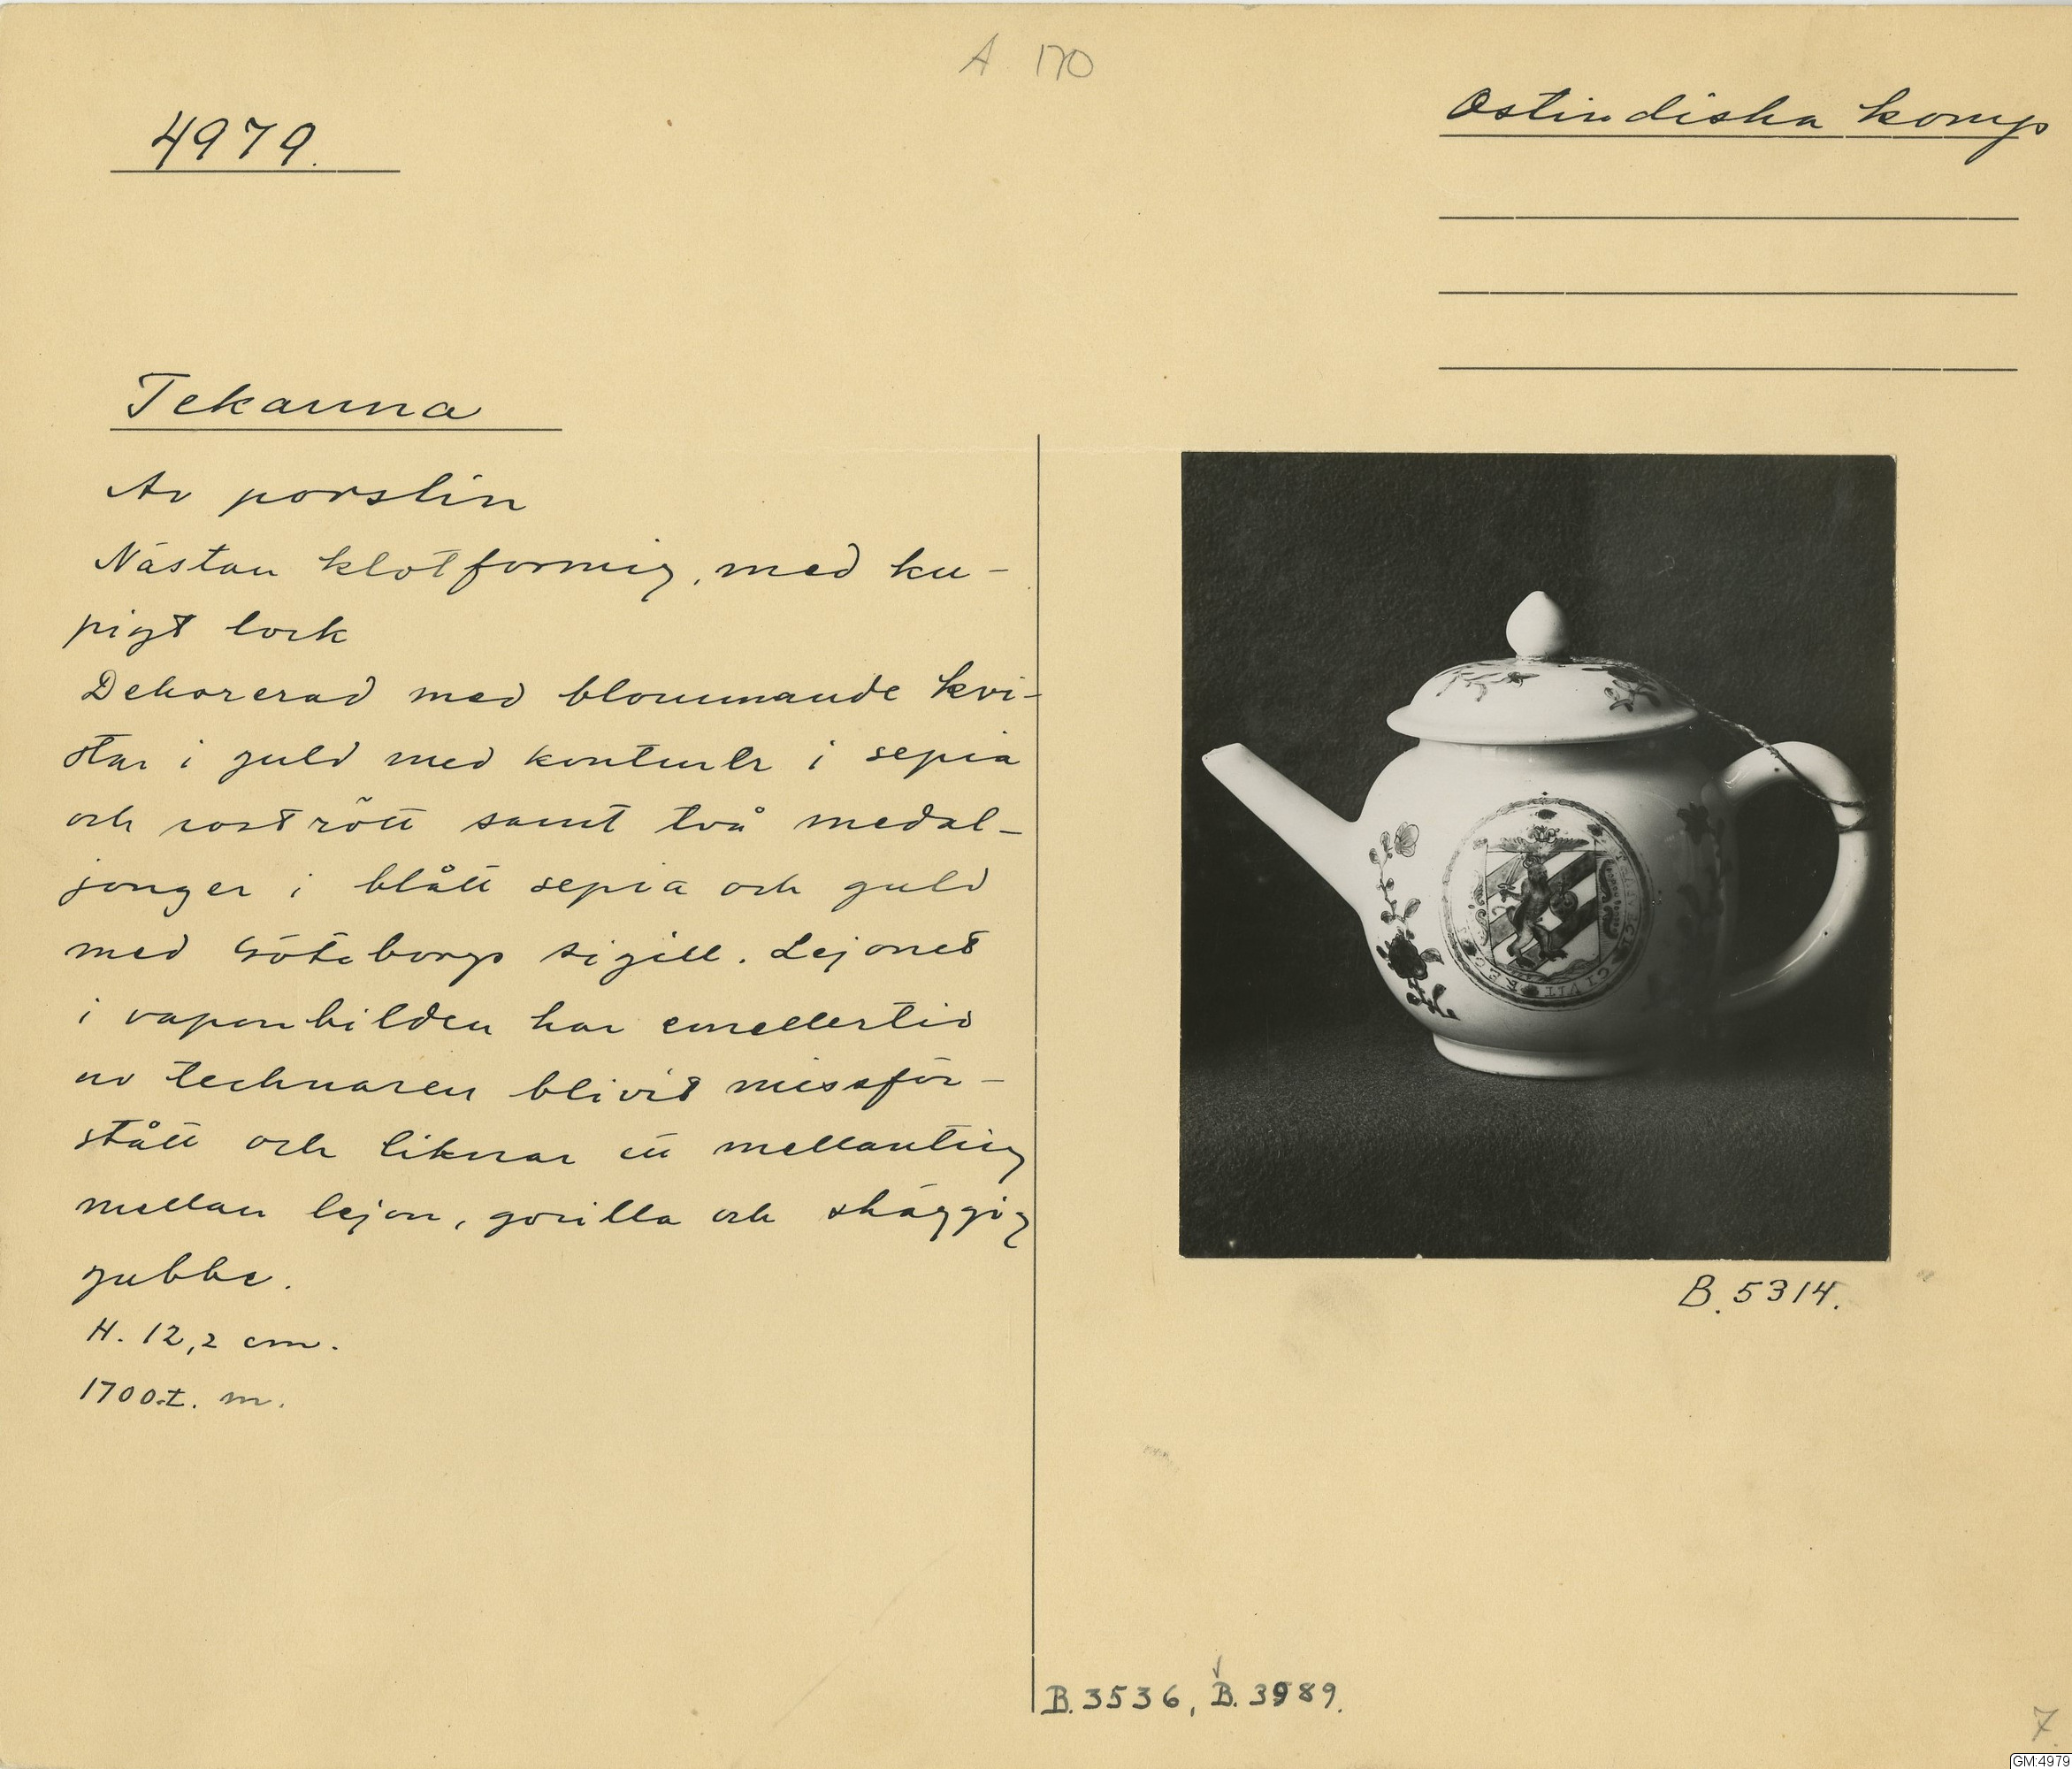 A 170
4979.
Ostindiska komp
Tekanna
Av porslin
Nästan klotformig, med ku-
pigt lock
Dekorerad med blommande kvi-
star i guld med konturer i sepia
och rostrött samt två medal-
jonger i blått sepia och guld
med Göteborgs sigill. Lejonet
i vapenbilden har emellertid
av tecknaren blivit missför-
stått och liknar ett mellanting
mellan lejon, gorilla och skäggig
gubbe.
H. 12,2 cm.
1700.t. m.
CIVIT
B. 5314.
B. 3536, B. 3989.
7
GM:4979